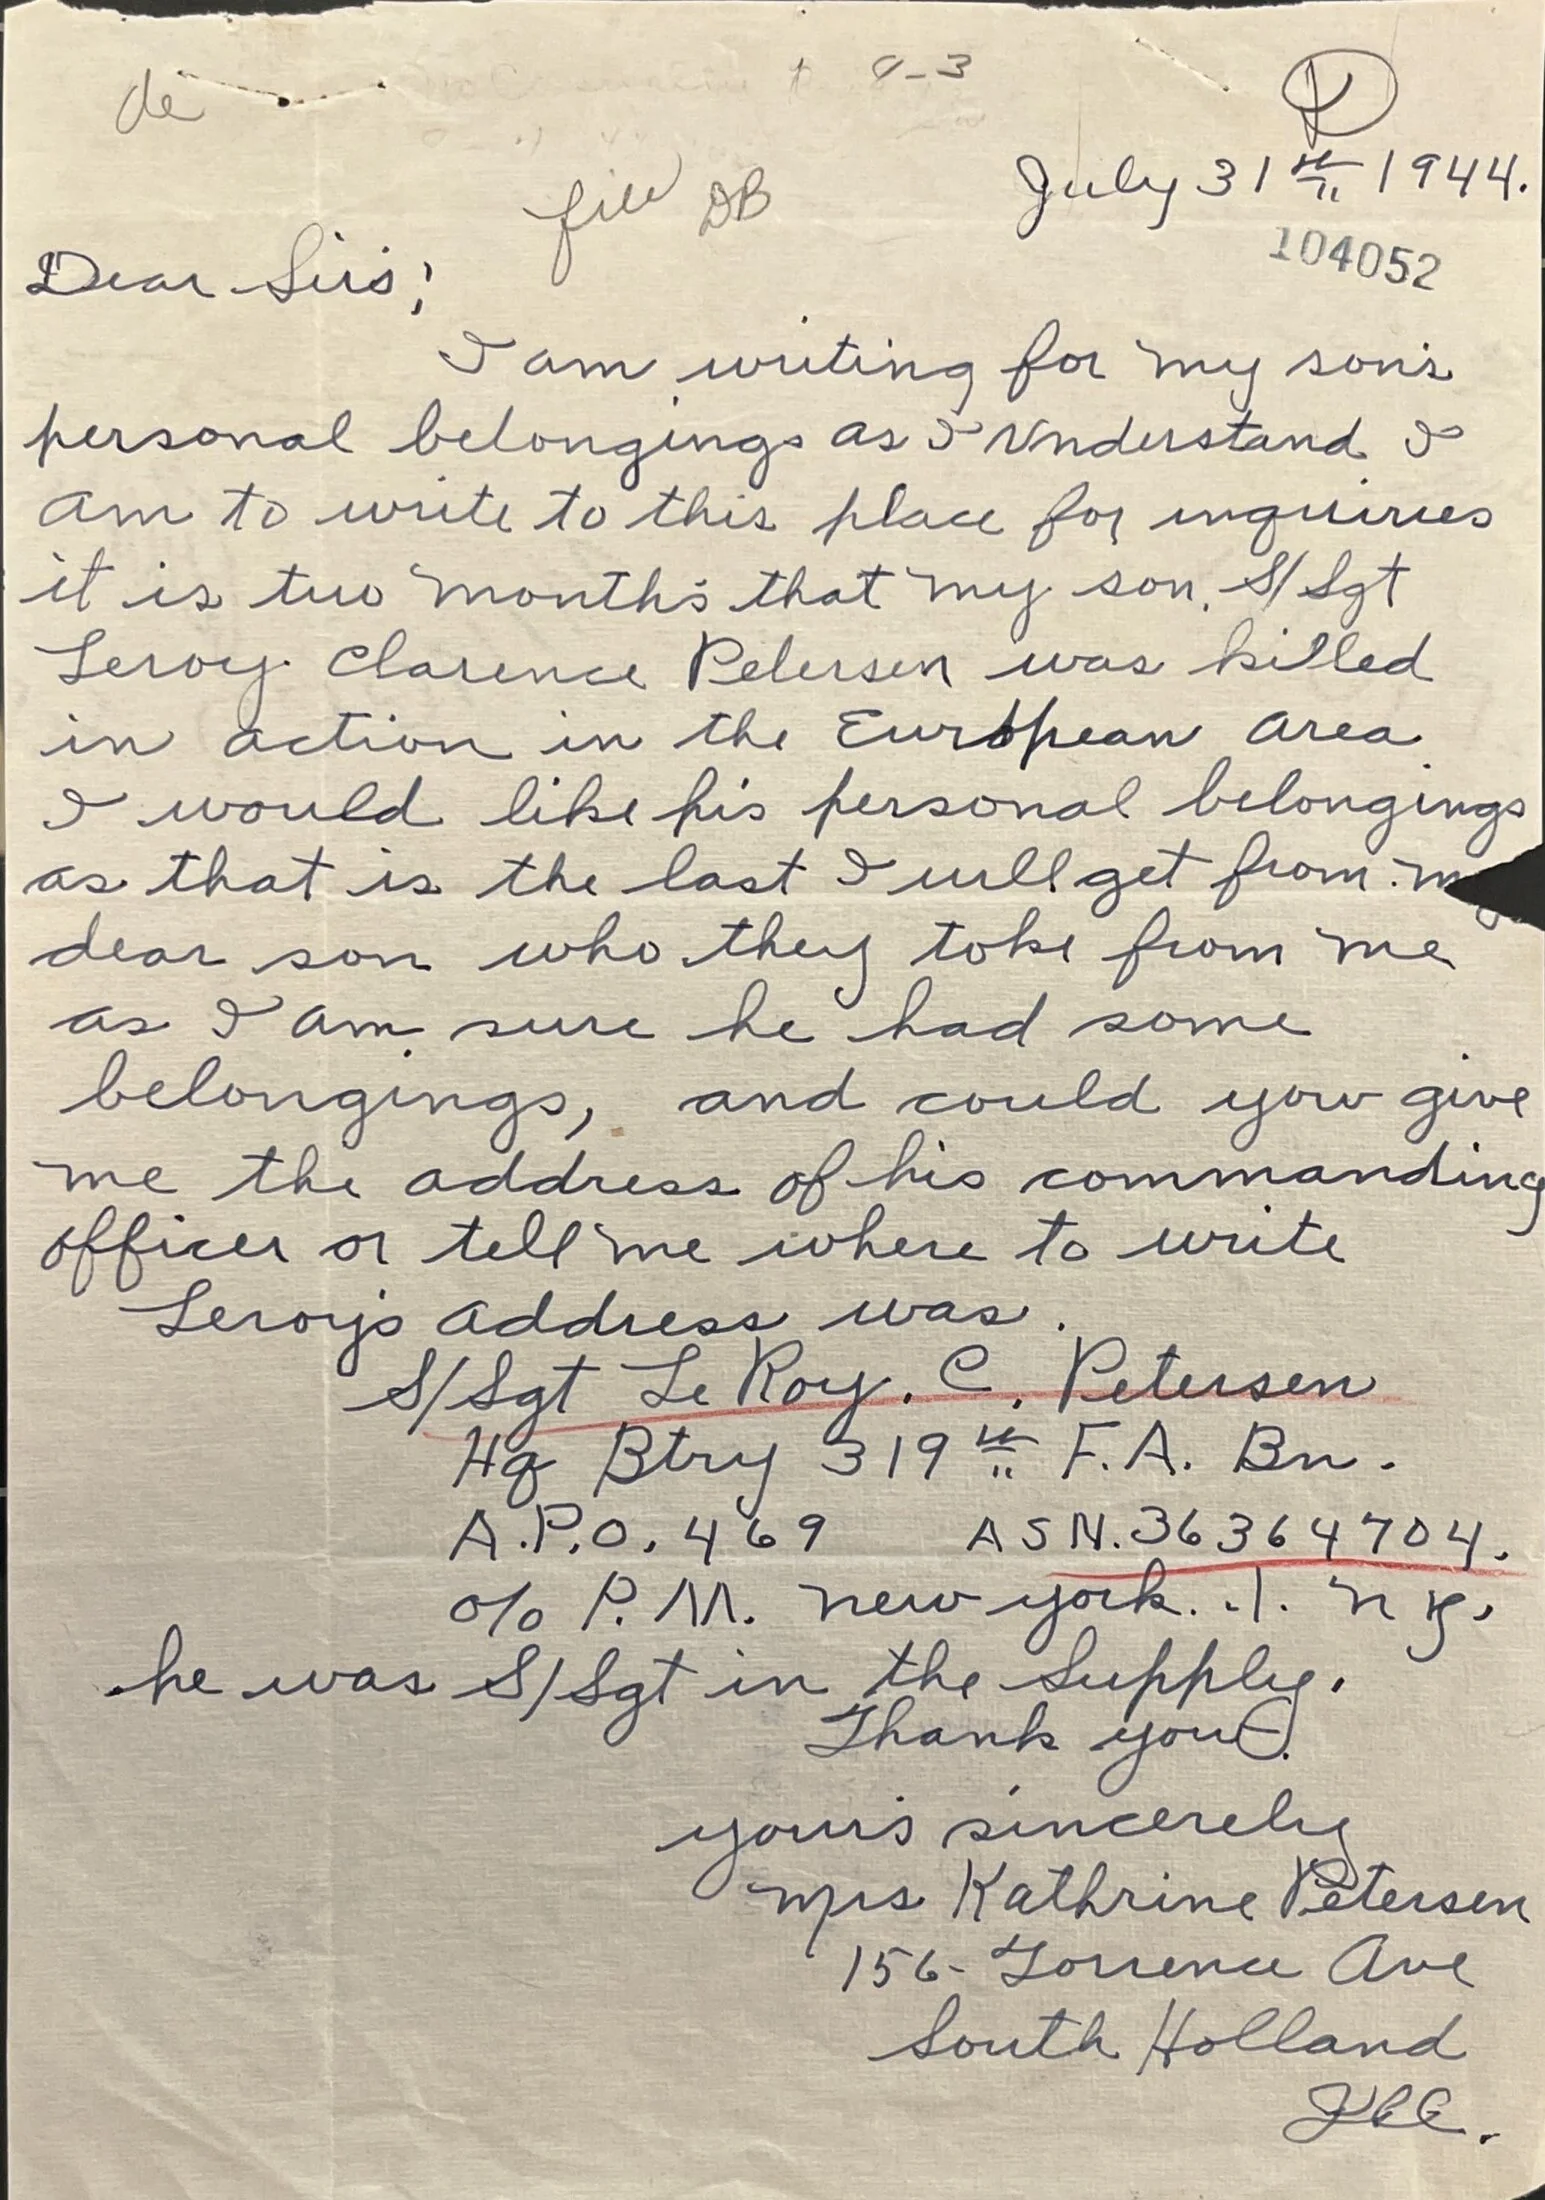 de
9-3
P
July 31th 1944.
file DB
104052
Dear Sirs;
I am writing for my son's
personal belongings as I Understand I
am to write to this place for inquiries
it is two month's that my son, S/Sgt
Leroy Clarence Petersen was killed
in action in the European area
I would like his personal belongings
as that is the last I will get from my
dear son who they toke from me
as I am sure he had some
belongings, and could you give
me the address of his commanding
officer or tell me where to write
Leroy's address was.
S/Sgt LeRoy. C. Petersen
Hq Btry 319th F.A. Bn.
A.P.O. 469 ASN. 36364704.
c/o P.M. New york. .1. n y.
he was S/Sgt in the Supply.
Thank you.
your's sincerely
Mrs Kathrine Petersen
156- Torrence Ave
South Holland
Ill.